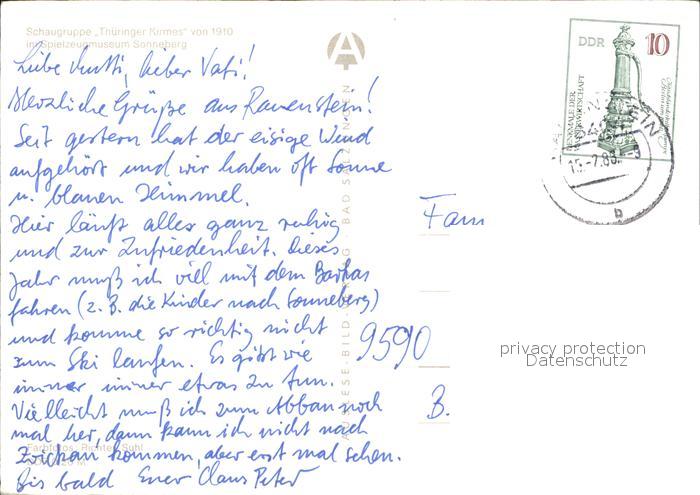 Schaugruppe „Thüringer Kirmes" von 1910
im Spielzeugmuseum Sonneberg
Liebe Mutti, lieber Vati!
Herzliche Grüße aus Rauenstein!
Seit gestern hat der eisige Wind
aufgehört und wir haben oft Sonne
u. blauen Himmel.
Hier läuft alles ganz ruhig
und zur Zufriedenheit. Dieses
Jahr muß ich viel mit dem Barkas
fahren (z. B. die Kinder nach Sonneberg)
und komme so richtig nicht
zum Ski laufen. Es gibt wie
immer immer etwas zu tun.
Vielleicht muß ich zum Abbau noch
mal her, dann kann ich nicht nach
Zwickau kommen, aber erst mal sehen.
Bis bald Euer Claus Peter
Farbfotos: Richter, Suhl
AUSLESE-BILD-VERLAG · BAD SALZUNGEN
A
DDR 10
DENKMALE DER
WASSERWIRTSCHAFT
15.-2.88.-9
b
Fam
9590
B.
privacy protection
Datenschutz